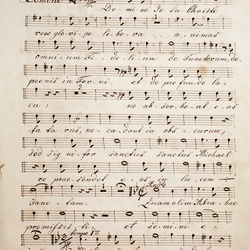 Domine
Do mi ne Je su Christe
rex glo ri ae li be ra a nimas
omni um Fi de li um de functorum de
poenis in fer ni et de pro fun do la
cu, ne ab sor be at e as
ta ta rus, ne ca dant in obs curum,
sed sig ni fer sanctus sanctus Michael
re prae sen det e as in lu cem
sanc tam. Quam olim Abra hae
promisisti, et se mi ni e